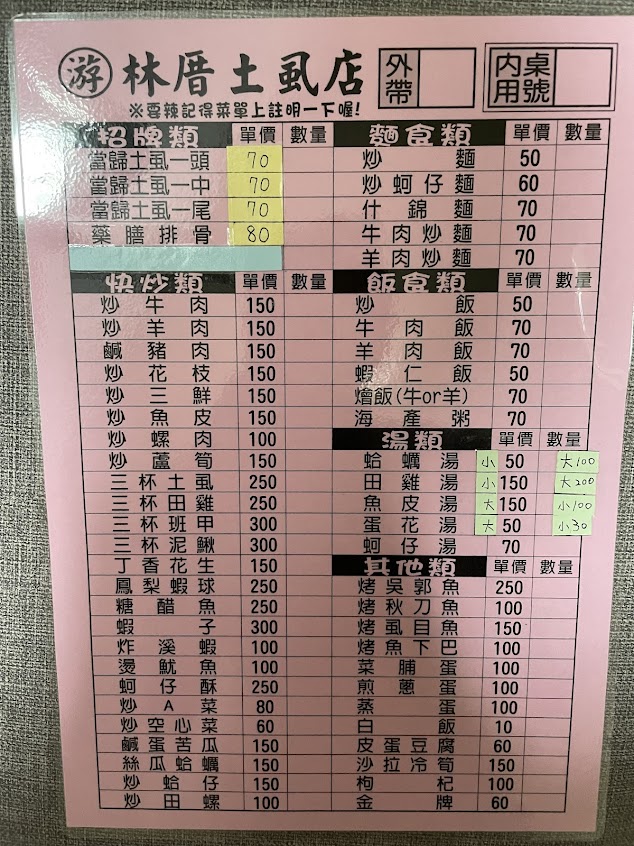 游 林厝土虱店 外帶 內用 桌號
※要辣記得菜單上註明一下喔!
招牌類 單價 數量
當歸土虱一頭 70
當歸土虱一中 70
當歸土虱一尾 70
藥膳排骨 80
快炒類 單價 數量
炒牛肉 150
炒羊肉 150
鹹豬肉 150
炒花枝 150
炒三鮮 150
炒魚皮 150
炒螺肉 100
炒蘆筍 150
三杯土虱 250
三杯田雞 250
三杯班甲 300
三杯泥鰍 300
丁香花生 150
鳳梨蝦球 250
糖醋魚 250
蝦子 300
炸溪蝦 100
燙魷魚 100
蚵仔酥 250
炒A菜 80
炒空心菜 60
鹹蛋苦瓜 150
絲瓜蛤蠣 150
炒蛤仔 150
炒田螺 100
麵食類 單價 數量
炒麵 50
炒蚵仔麵 60
什錦麵 70
牛肉炒麵 70
羊肉炒麵 70
飯食類 單價 數量
炒飯 50
牛肉飯 70
羊肉飯 70
蝦仁飯 50
燴飯(牛or羊) 70
海產粥 70
湯類 單價 數量
蛤蠣湯 小 50 大100
田雞湯 小 150 大200
魚皮湯 大 150 小100
蛋花湯 大 50 小30
蚵仔湯 70
其他類 單價 數量
烤吳郭魚 250
烤秋刀魚 100
烤虱目魚 150
烤魚下巴 100
菜脯蛋 100
煎蔥蛋 100
蒸蛋 100
白飯 10
皮蛋豆腐 60
沙拉冷筍 150
枸杞 100
金牌 60